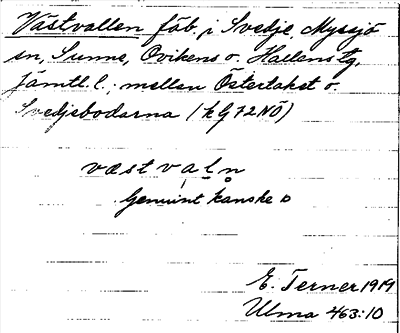 Västvallen fäb. i Svedje, Myssjö
sn, Sunne, Ovikens o. Hallens tg,
Jämtl. l.; mellan Östertaket o.
Svedjebodarna (kG72NÖ)
væstvaln
Genuint kanske o
E. Terner 1919
Ulma 463:10